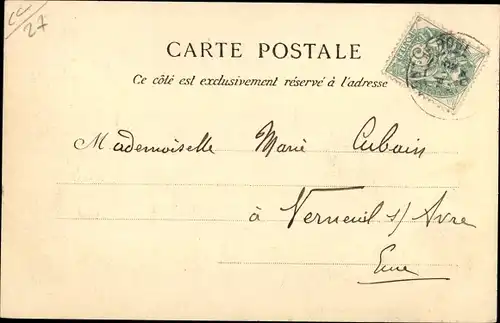 CC
27
CARTE POSTALE
Ce côté est exclusivement réservé à l'adresse
Mademoiselle Marie Cubain
à Verneuil s/ Avre
Eure